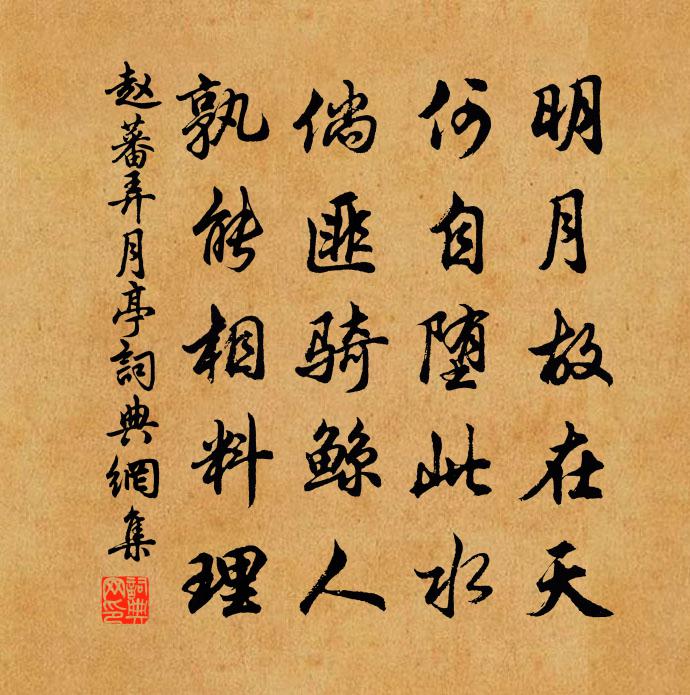 明月故在天
何自堕此水
倘匪骑鲸人
孰能相料理
赵蕃弄月亭詞典網集
詞典网印